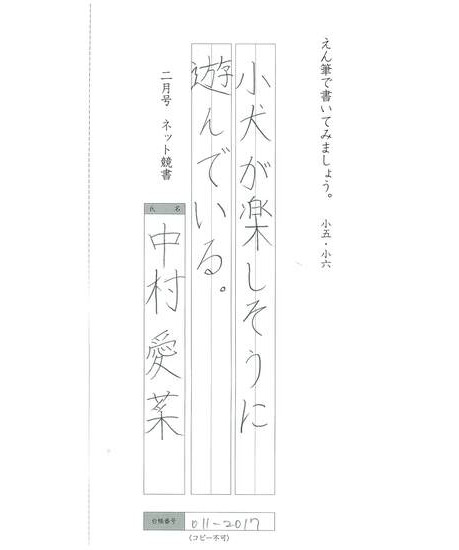 えん筆で書いてみましょう。 小五・小六
小犬が楽しそうに
遊んでいる。
二月号 ネット競書
氏名
中村愛菜
台帳番号 011-2017
(コピー不可)